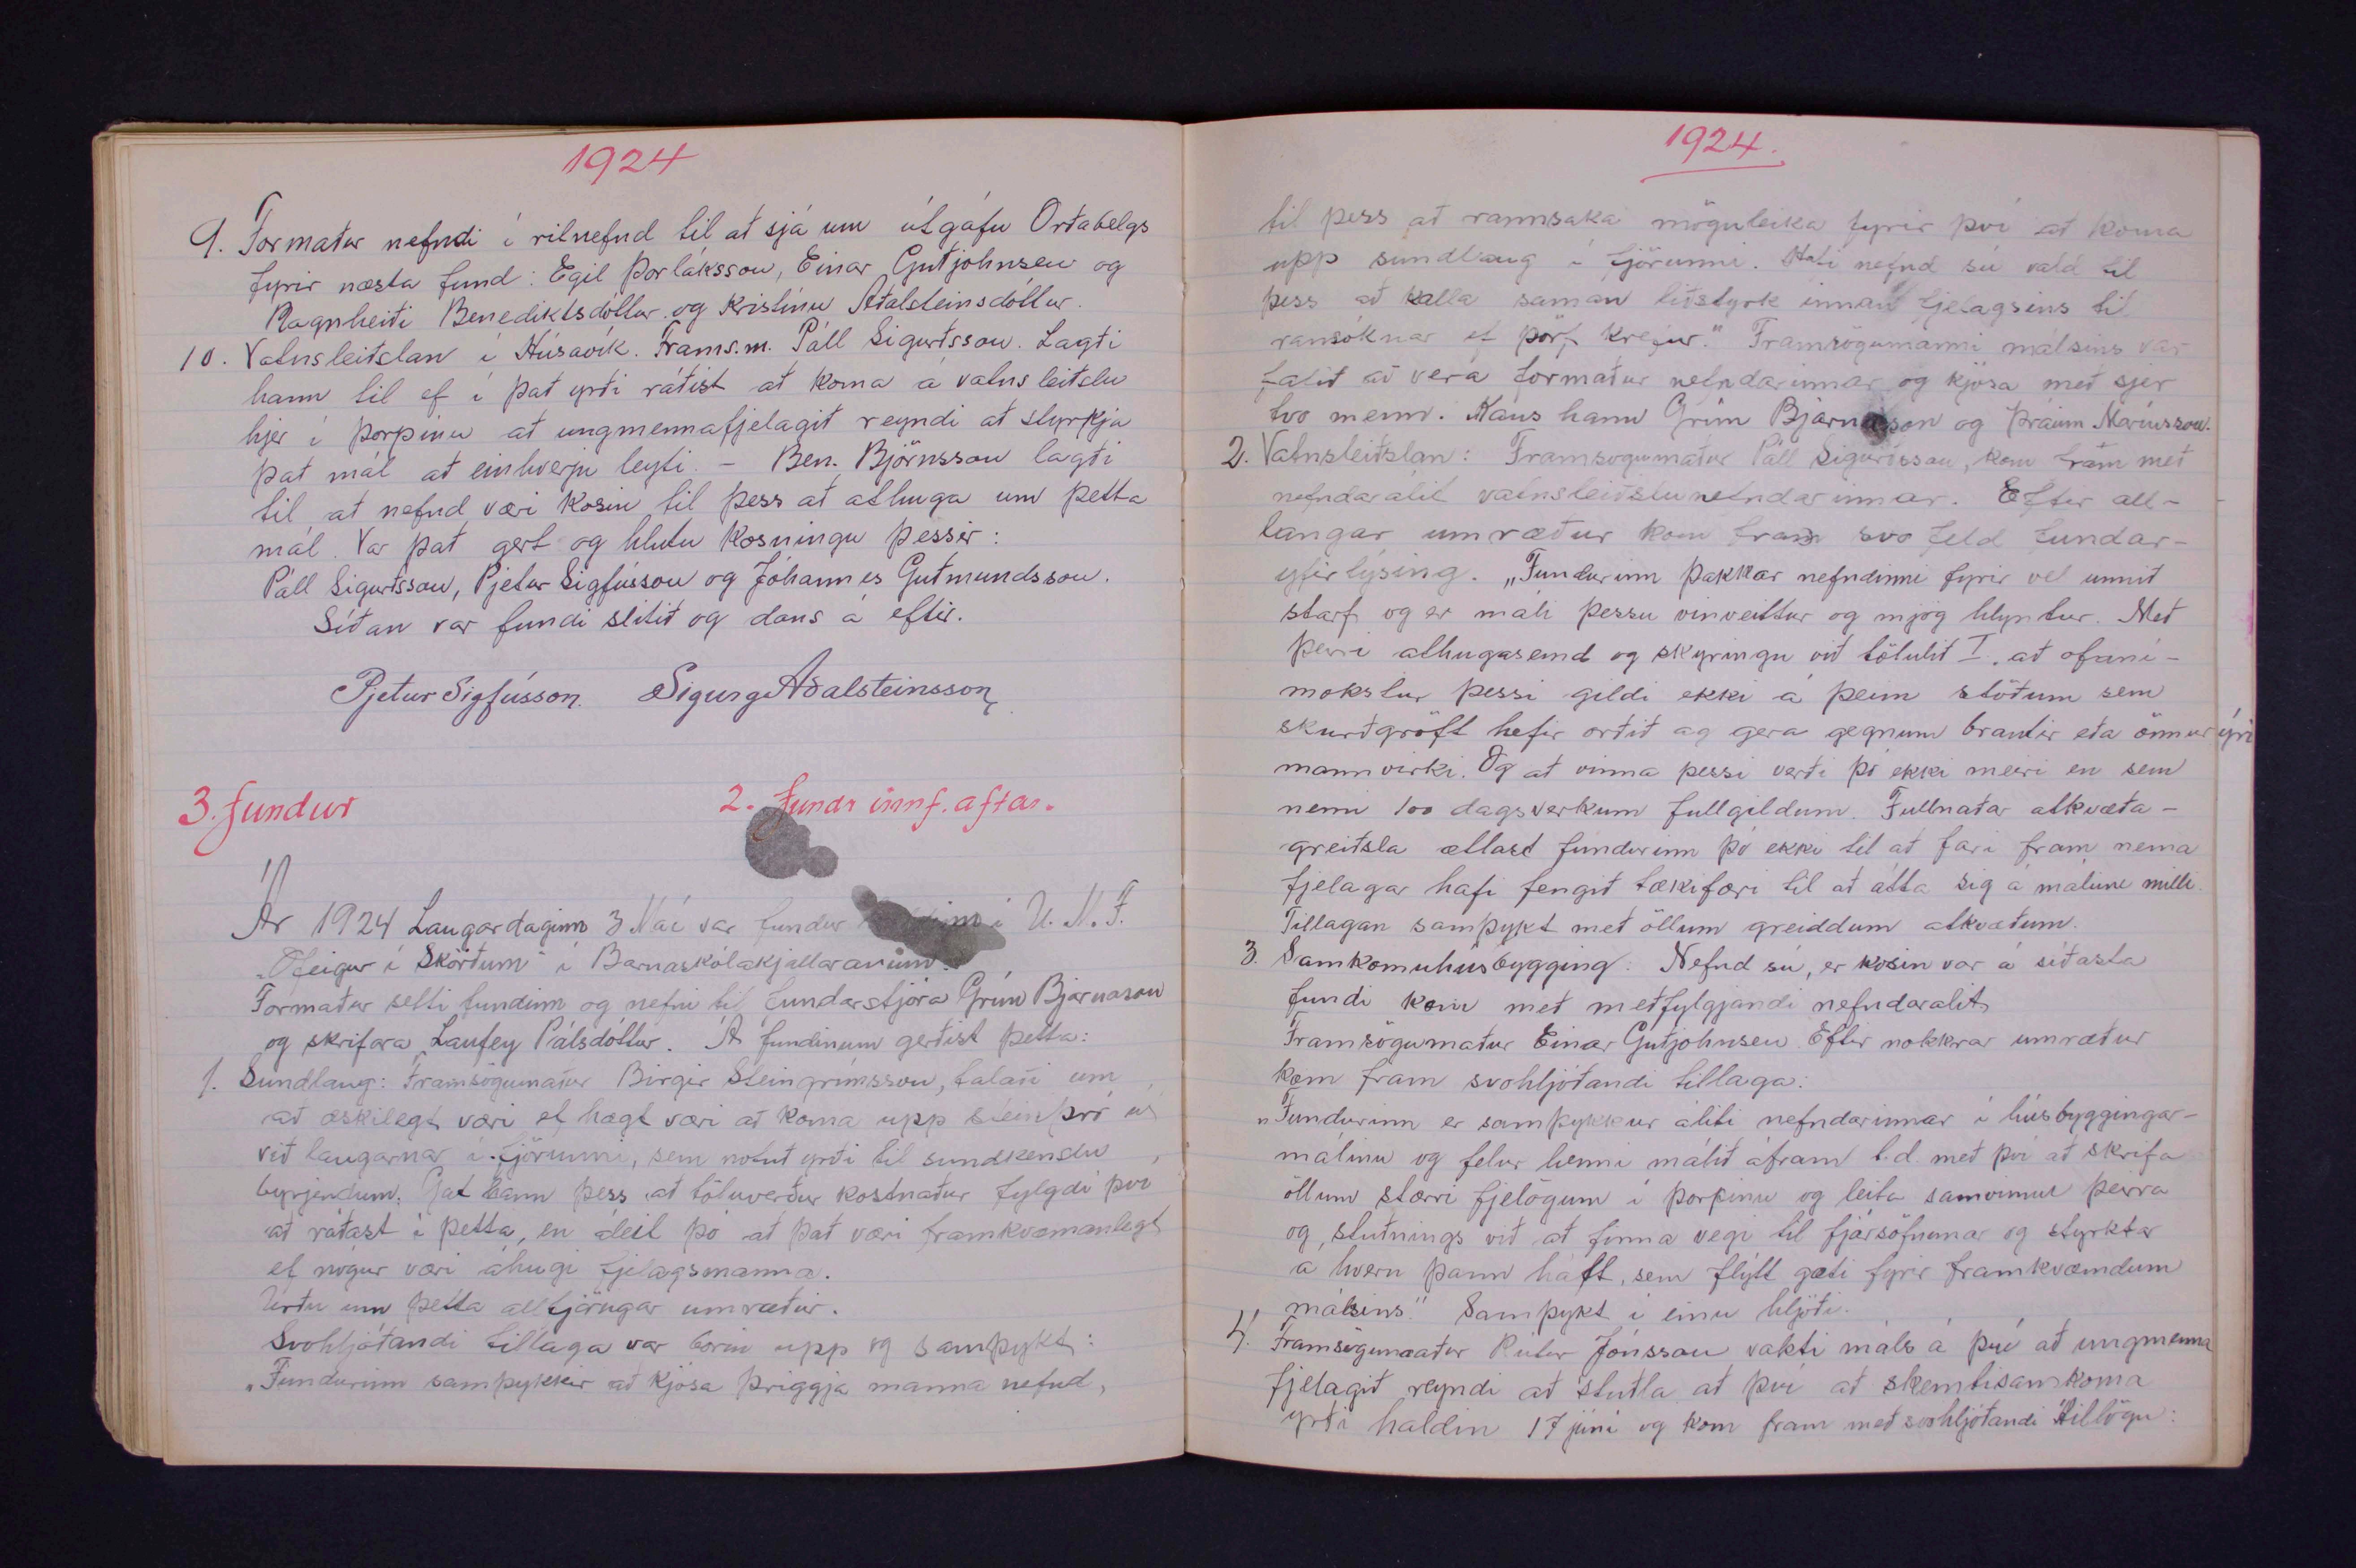 1924
9. Formaður nefndi í ritnefnd til að sjá um útgáfu Orðabelgs
fyrir næsta fund: Egil Þorláksson, Einar Guðjohnsen og
Ragnheiði Benediktsdóttur og Kristínu Aðalsteinsdóttur.
10. Vatnsleiðslan í Húsavík. Frams.m. Páll Sigurðsson. Lagði
hann til ef í það yrði ráðist að koma á vatnsleiðslu
hjer í þorpinu að ungmennafjelagið reyndi að styrkja
það mál að einhverju leyti. - Ben. Björnsson lagði
til að nefnd væri kosin til þess að athuga um þetta
mál. Var það gert og hlutu kosningu þessir:
Páll Sigurðsson, Pjetur Sigfússon og Jóhannes Guðmundsson.
Síðan var fundi slitið og dans á eftir.
Pjetur Sigfússon. Sigurg Aðalsteinsson
3. fundur 2. fundr innf. aftar.
Ár 1924 Laugardaginn 3 Maí var fundur haldinn í U. M. F.
„Ófeigur í Skörðum" í Barnaskólakjallaranum.
Formaður setti fundinn og nefni til fundarstjóra Grím Bjarnason
og skrifara Laufey Pálsdóttur. Á fundinum gerðist þetta:
1. Sundlaug: Framsögumaður Birgir Steingrímsson, talaði um
að æskilegt væri ef hægt væri að koma upp steinþró
við laugarnar í fjörunni, sem notuð yrði til sundkenslu
byrjendum. Gat hann þess að töluverður kostnaður fylgdi því
að ráðast í þetta, en áleit þó að það væri framkvæmanlegt
ef nógur væri áhugi fjelagsmanna.
Urðu um þetta allfjörugar umræður.
Svohljóðandi tillaga var borin upp og samþykt:
„Fundurinn samþykkir að kjósa þriggja manna nefnd,
1924.
til þess að rannsaka möguleika fyrir því að koma
upp sundlaug í fjörunni. Hafi nefnd sú vald til
þess að kalla saman liðstyrk innan fjelagsins til
ransóknar ef þörf krefur." Framsögumanni málsins var
falið að vera formaður nefndarinnar og kjósa með sjer
tvo menn. Kaus hann Grím Bjarnason og Þráinn Maríusson.
2. Vatnsleiðslan: Framsögumaður Páll Sigurðsson, kom fram með
nefndarálit vatnsleiðslunefndarinnar. Eftir all-
langar umræður kom fram svo feld fundar-
yfirlýsing. „Fundurinn þakkar nefndinni fyrir vel unnið
starf og er máli þessu vinveittur og mjög hlyntur. Með
þeirri athugasemd og skýringu við tölulið I. að ofaní-
mokstur þessi gildi ekki á þeim stöðum sem
skurðgröft hefir orðið að gera gegnum brautir eða önnur ýri
mannvirki. Og að vinna þessi verði þó ekki meiri en sem
nemi 100 dagsverkum fullgildum. Fullnaðar atkvæða-
greiðsla ætlast fundurinn þó ekki til að fari fram nema
fjelagar hafi fengið tækifæri til að átta sig á málinu milli.
Tillagan samþykt með öllum greiddum atkvæðum.
3. Samkomuhúsbygging: Nefnd sú, er kosin var á síðasta
fundi kom með meðfylgjandi nefndarálit
Framsögumaður Einar Guðjohnsen. Eftir nokkrar umræður
kom fram svohljóðandi tillaga:
„Fundurinn er samþykkur áliti nefndarinnar í húsbyggingar-
málinu og felur henni málið áfram t.d. með því að skrifa
öllum stærri fjelögum í þorpinu og leita samvinnu þeirra
og stuðnings við að finna vegi til fjársöfnunar og styrktar
á hvern þann hátt, sem flýtt gæti fyrir framkvæmdum
málsins." Samþykt í einu hljóði.
4. Framsögumaður Rútur Jónsson vakti máls á því að ungmenna
fjelagið reyndi að stuðla að því að skemtisamkoma
yrði haldin 17 júní og kom fram með svohljóðandi tillögu: